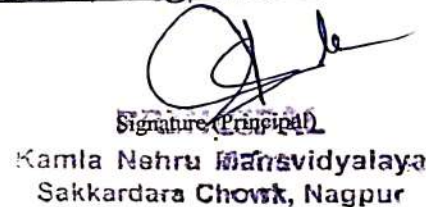 Signature (Principal)
Kamla Nehru Mahavidyalaya
Sakkardara Chowk, Nagpur